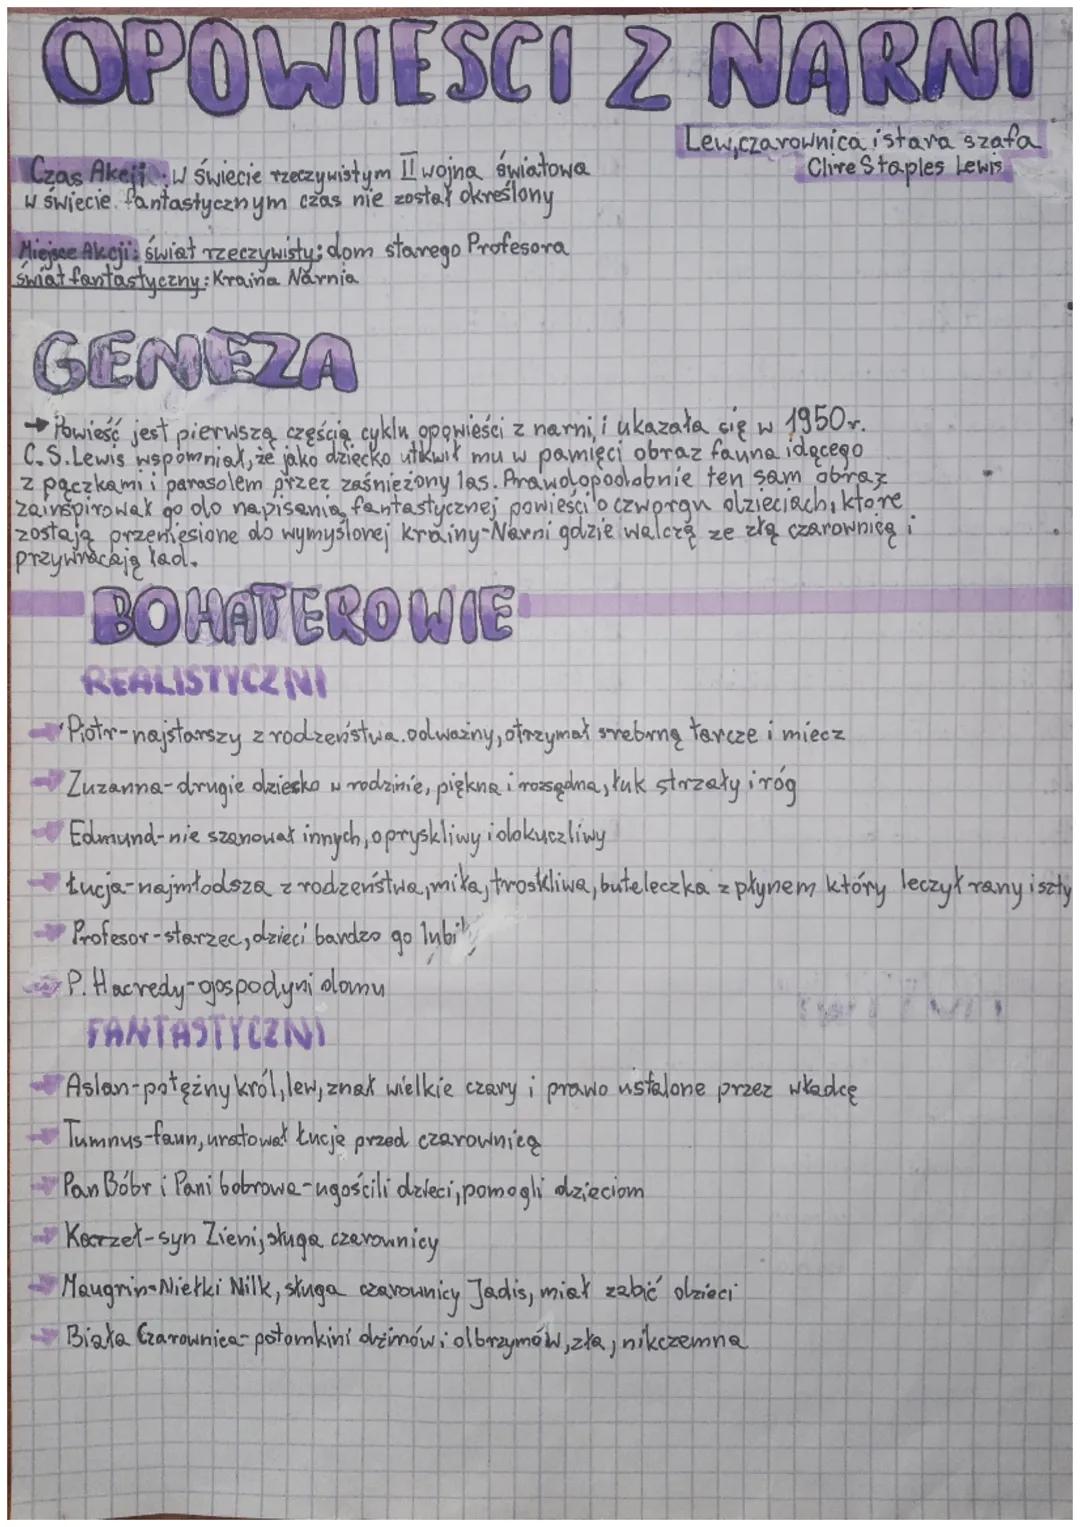 OPOWIEŚCI Z NARNI
Lew, czarownica i stara szafa
Clire Staples Lewis
Czas Akcji: w świecie rzeczywistym II wojna światowa
w świecie fantastycznym czas nie został określony
Miejsce Akcji: świat rzeczywisty: dom starego Profesora
świat fantastyczny: Kraina Narnia
GENEZA
→ Powieść jest pierwszą częścią cyklu opowieści z narni, i ukazała się w 1950r.
C.S. Lewis wspomniał, że jako dziecko utkwił mu w pamięci obraz fauna idącego
z pączkami i parasolem przez zaśnieżony las. Prawdopodobnie ten sam obraz
zainspirował go do napisania fantastycznej powieści o czworgu dzieciach, które
zostają przeniesione do wymyślonej krainy-Narni gdzie walczą ze złą czarownicą i
przywracają ład.
BOHATEROWIE
REALISTYCZNI
→ Piotr-najstarszy z rodzeństwa. odważny, otrzymał srebrną tarcze i miecz
→ Zuzanna-drugie dziecko w rodzinie, piękna i rozsądna, łuk strzały i róg
→ Edmund-nie szanował innych, opryskliwy i dokuczliwy
→ Łucja-najmłodsza z rodzeństwa, miła, troskliwa, buteleczka z płynem który leczył rany i szty
→ Profesor-starzec, dzieci bardzo go lubiły
→ P. Hacredy-gospodyni domu
FANTASTYCZNI
→ Aslan-potężny król, lew, znał wielkie czary i prawo ustalone przez władcę
→ Tumnus-faun, uratował Łucję przed czarownicą
→ Pan Bóbr i Pani bobrowa-ugościli dzieci, pomogli dzieciom
→ Karzeł-syn Zieni, sługa czarownicy
→ Maugrin-Niełki Nilk, sługa czarownicy Jadis, miał zabić dzieci
→ Biała Czarownica-potomkini dżinów i olbrzymów, zła, nikczemna